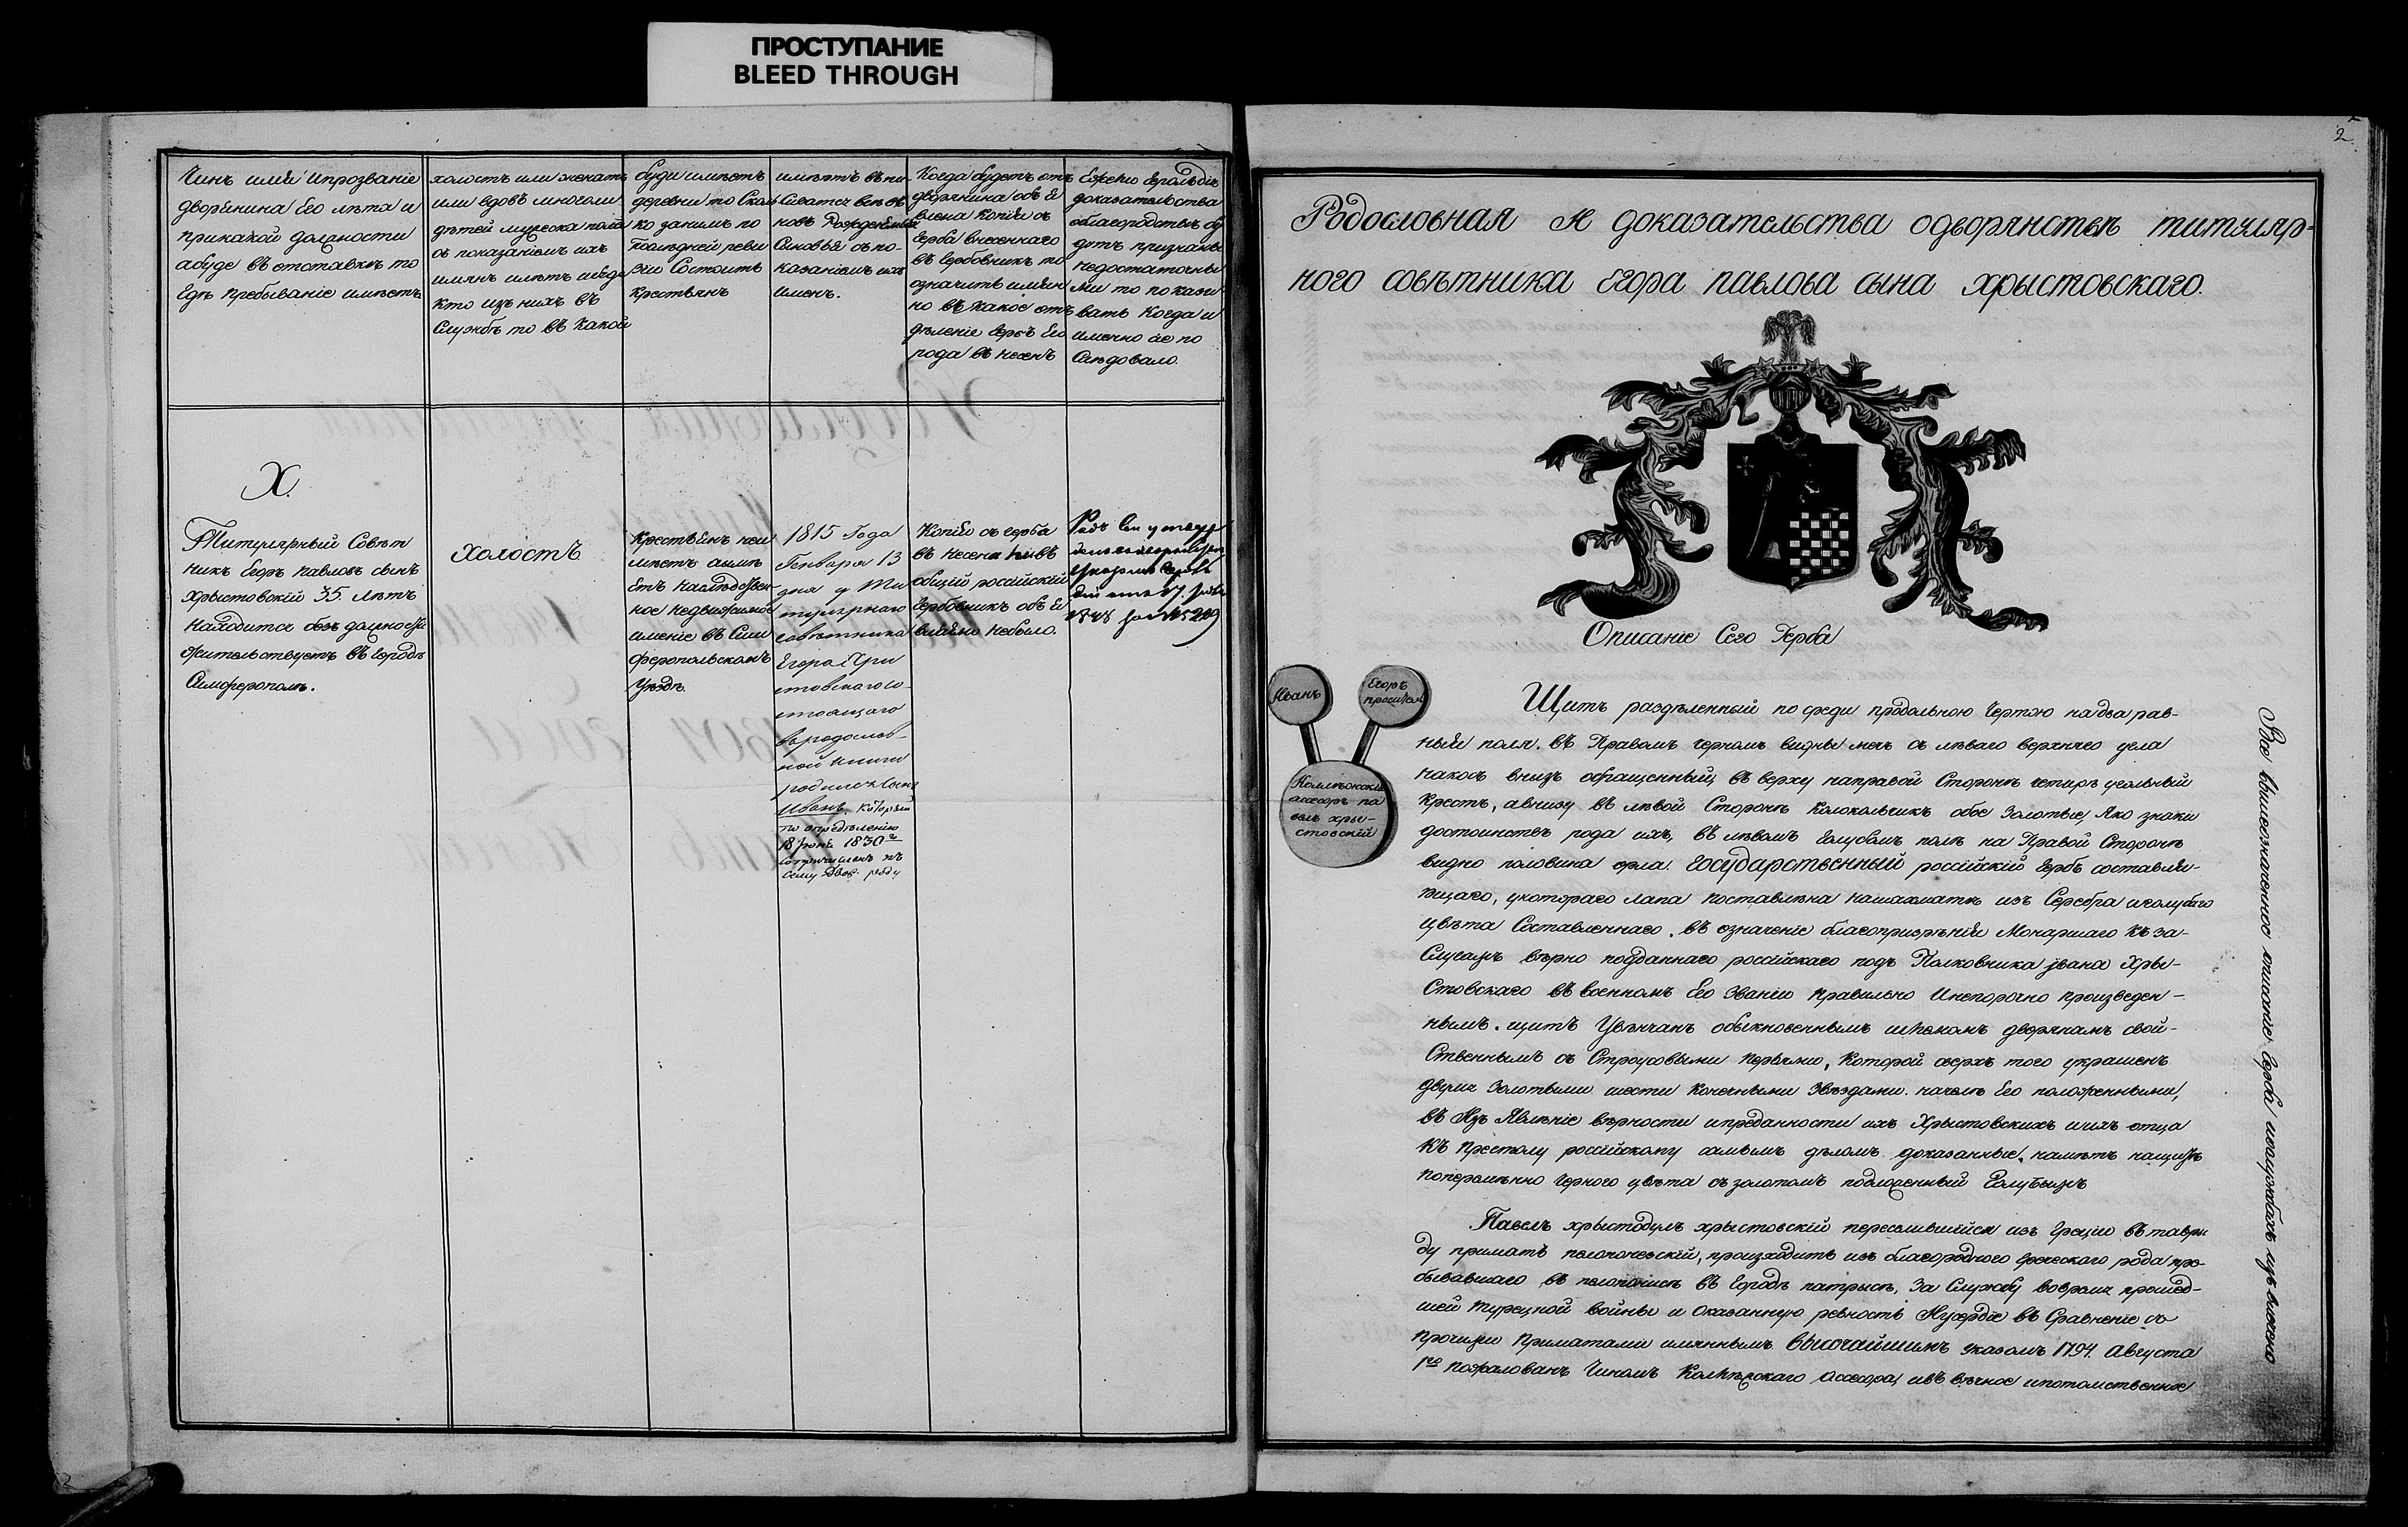 ПРОСТУПАНИЕ
BLEED THROUGH
Чинъ имя ипрозваніе
дворянина Его лѣта и
прикакой должности
абуде въ отставкѣ то
Гдѣ пребываніе имѣетъ
холостъ или женатъ
или вдовъ многоли
дѣтей мужеска пола
съ показаніемъ ихъ
имянъ лѣтъ игдѣ
кто изъ нихъ въ
Службѣ то въ какой
буди имѣетъ
деревни то Сколь
ко занимъ по
Послѣдней реви
зіи Состоитъ
крестьянъ
имѣетъ
новъ Рожденные
Сыновья съ по-
казаніемъ ихъ
Именъ.
Когда будетъ отъ
дворянина объя
влена Копія съ
герба внесеннаго
въ Гербовникъ то
означить имян
но въ какое отъ
дѣленіе гербъ Его
рода въ несенъ
Ежели Герольдіи
доказательства
облагородствѣ бу
дутъ признаны
Недостаточны
ми то показы
вать Когда и
именно ее по
Слѣдовало.
X.
Титулярный Совѣт
никъ Егоръ павловъ сынъ
Христовскій 35. лѣтъ
Находится безъ должности
жительствуетъ въ городѣ
Симферополѣ.
холостъ
Крестьянъ неи
мѣетъ аимѣ
Етъ Наслѣдствен
ное недвижимое
именіе въ Сим
феропольскомъ
Уездѣ.
1815 Года
Генваря 13
дня у Ти
тулярнаго
совѣтника
Егора Хри
стовскаго со-
стоящаго
въ родослов-
ной книги
родился сынъ
Иванъ. который
по опредѣленію
18 Іюня 1830 г
сопричисленъ къ
сему Двор. роду
Копія съ герба
въ несена въ
общій россійскій
гербовникъ объя
вляемо небыло.
Родъ Сей утверж
денъ въ дворянствѣ
Указомъ Героль
2
Родословная И доказательства одворянствѣ титуляр-
ного совѣтника Егора павлова сына хрыстовскаго.
Описаніе Сего Герба
Иванъ
Егоръ
проситель
Коллѣжскій
ассесоръ па
велъ хры-
стовскій
Щитъ раздѣленный по среди продольною Чертою на два рав-
ныя поля. въ Правомъ черномъ видны мечь съ лѣваго верхняго угла
накось внизъ обращенный, въ верху направой Сторонѣ четыре угольный
Крестъ, авнизу въ лѣвой Сторонѣ Колокольчикъ обое Золотые, Яко знаки
достоинствъ рода ихъ, въ лѣвомъ голубомъ полѣ на Правой Сторонѣ
видно половина орла. Государственный россійскій Гербъ составля-
ющаго, укотораго лапа поставлена нашахматѣ изъ Серебра иголубаго
цвѣта Составленнаго. въ означеніе благопризрѣнія Монаршаго къ за-
Слугамъ вѣрно подданнаго россійскаго подъ Полковника Iвана Хры-
Стовскаго въ военномъ Его Званіи правильно Инепорочно произведен-
нымъ. щитъ Увѣнчанъ обыкновеннымъ шлемомъ дворянамъ свой-
Ственнымъ съ Строусовыми перьями, Которой сверхъ того украшенъ
двумя Золотыми шести Конечными Звѣздами. начелѣ Его положенными,
въ Изъ Явленіе вѣрности ипреданности ихъ Хрыстовскихъ ихъ отца
Къ Престолу россійскому самымъ дѣломъ доказанные. наметъ нащитѣ
поперемѣнно черного цвѣта съ золотомъ подложенный Голубымъ
Павелъ хрыстодулъ хрыстовскій переселившійся изъ Греціи въ таври
ду приматъ пелопонезскій, произходитъ изъ благороднаго греческаго рода пре-
бывавшаго въ пелопонисѣ въ Городѣ патрысѣ, За Службу вовремя прошед-
шей турецкой войны и оказанную ревность Иусердіе въ Сравненіе съ
прочими Приматами имяннымъ Высочайшимъ указомъ 1794. Августа
1го пожалованъ Чиномъ Коллѣжскаго Ассесора, ивъ вѣчное ипотомственное